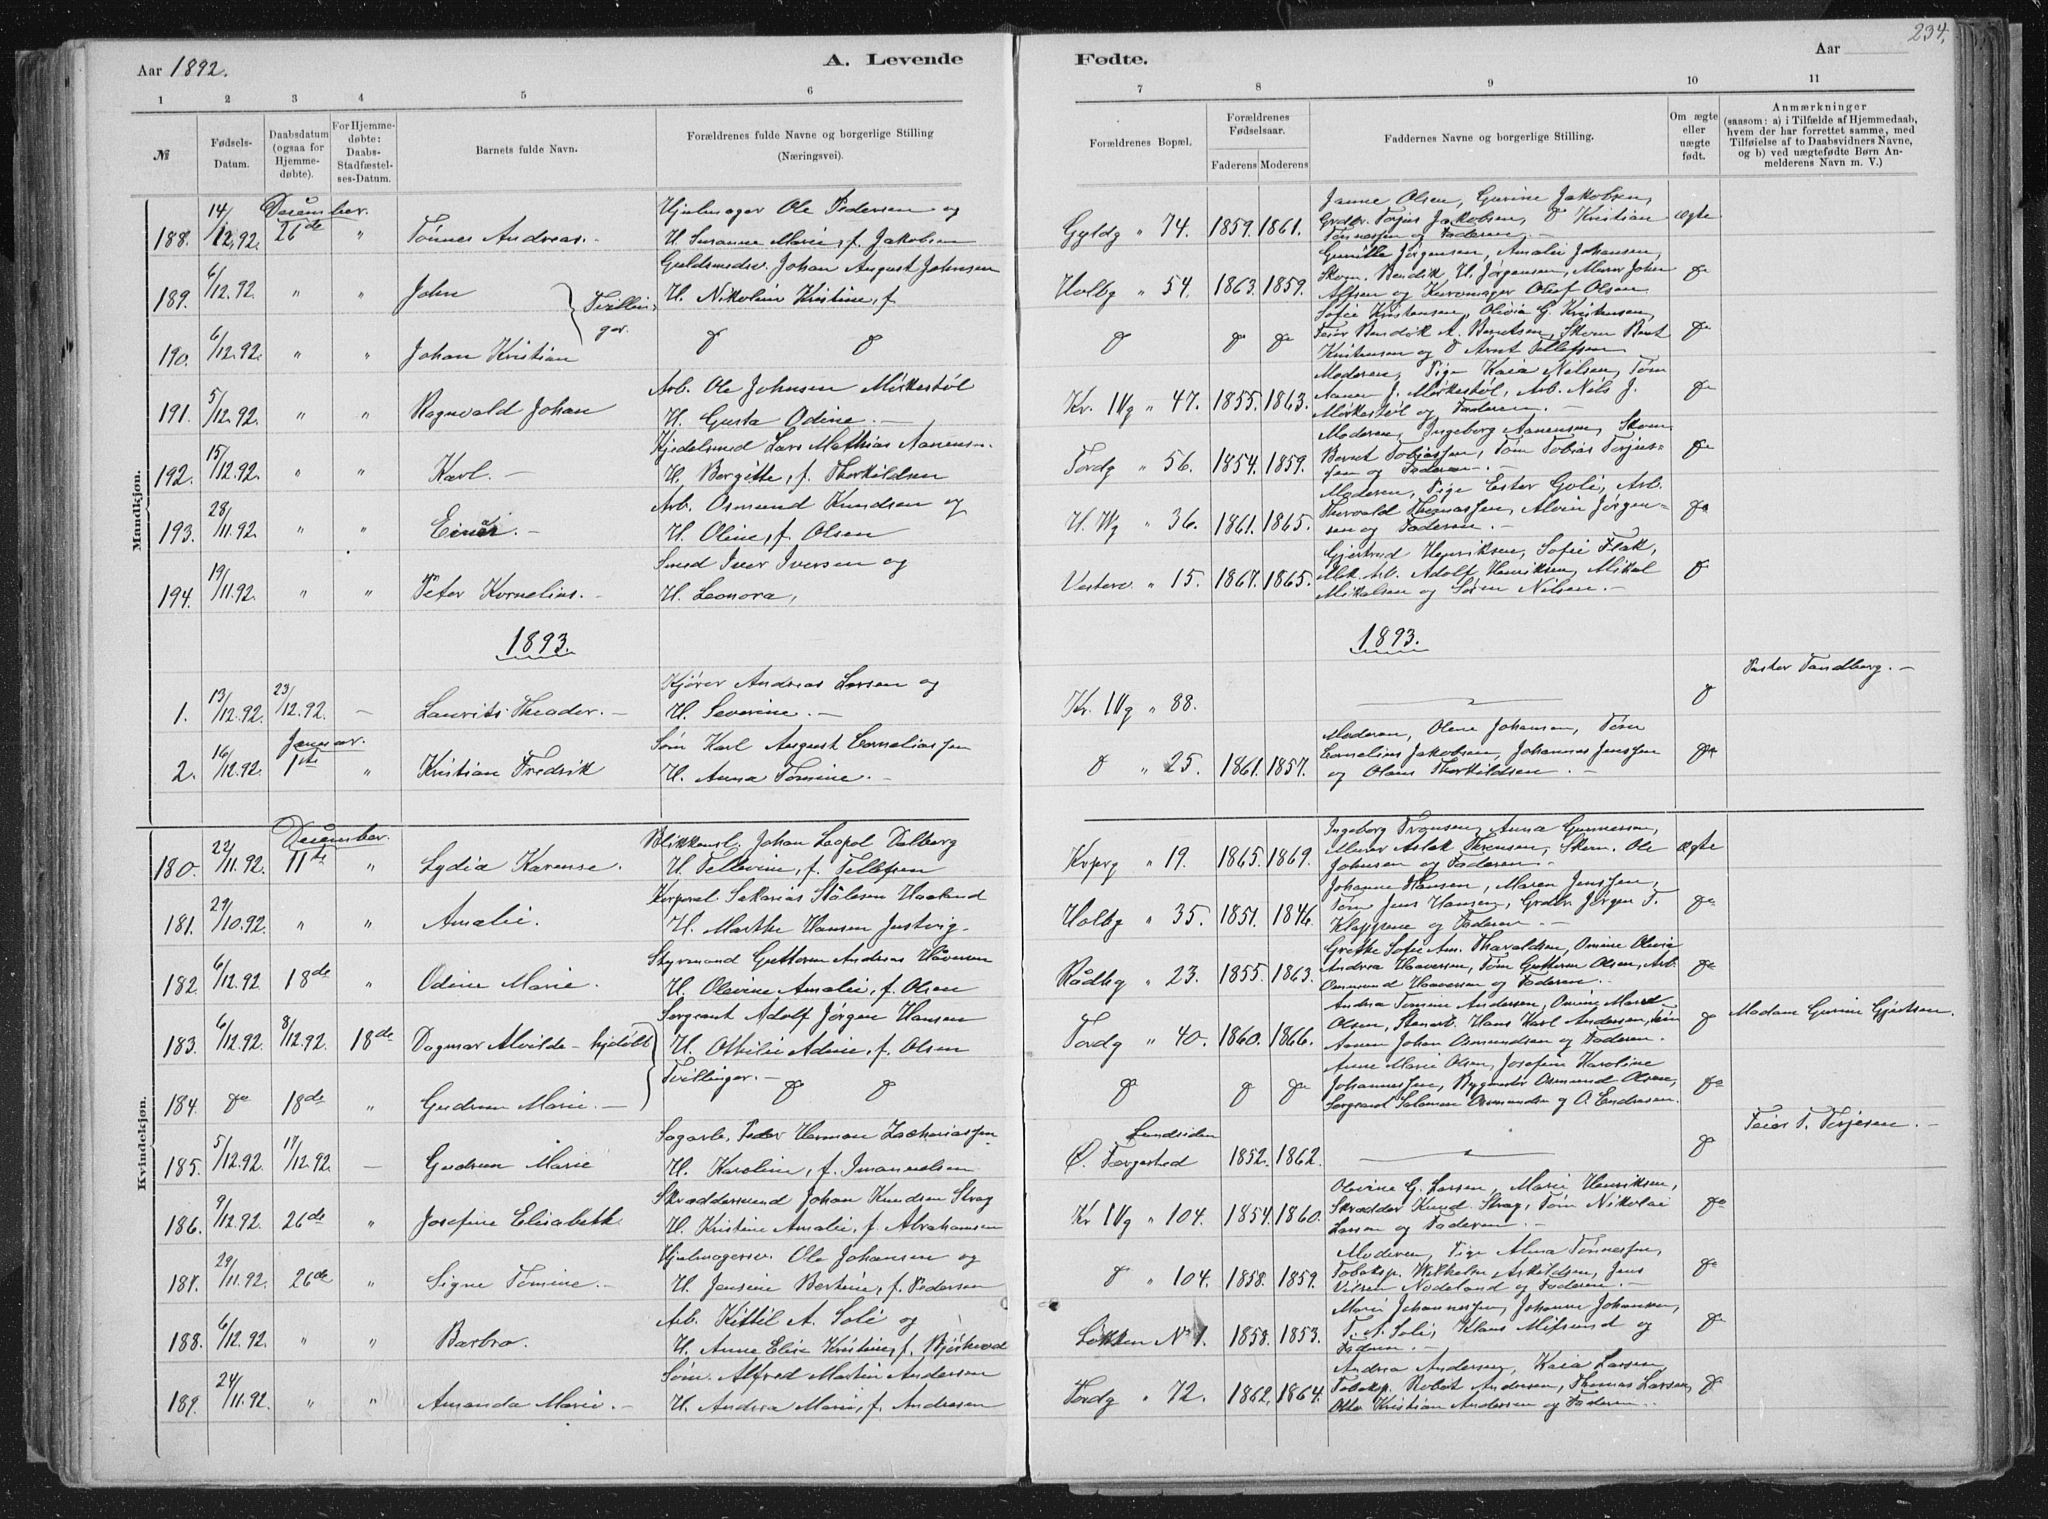 234.
Aar 1892.
A. Levende
Fødte.
Aar
1 2 3 4 5 6 7 8 9 10 11
№
Fødsels-Datum.
Daabsdatum (ogsaa for Hjemmedøbte).
For Hjemmedøbte: Daabs-Stadfæstelses-Datum.
Barnets fulde Navn.
Forældrenes fulde Navne og borgerlige Stilling (Næringsvei).
Forældrenes Bopæl.
Forældrenes Fødselsaar.
Faderens Moderens
Faddernes Navne og borgerlige Stilling.
Om ægte eller uægte født.
Anmærkninger
(saasom: a) i Tilfælde af Hjemmedaab, hvem der har forrettet samme, med Tilføielse af to Daabsvidners Navne, og b) ved uægtefødte Børn Anmelderens Navn m. V.)
Mandkjøn.
December.
188. 14/12.92. 26de " Tønnes Andreas. -
Hjulmager Ole Pedersen og
H. Susanne Marie, f. Jakobsen
Gyldg " 74. 1859. 1861.
Janne Olsen, Gurine Jakobsen,
Grdbr. Terjus Jakobsen, Kristian
Tønnessen og Faderen. -
ægte
189. 6/12.92. " " John
Tvillinger.
Guldsmedsv. Johan August Johnsen
H. Nikoline Kristine, f.
Holbg " 54. 1863. 1859.
Gunille Jørgensen, Amalie Johansen,
Skom. Bendik H. Jørgensen, Murer John
Alfsen og Kurvmager Oluf Olsen
do
190. 6/12.92. " " Johan Kristian
do do
do do do
Sofie Kristensen, Olivia G. Kristensen,
Feier Bendik A. Berntsen, Skom Bent
Kristensen og Arnt Tellefsen
do
191. 5/12.92. " " Ragnvald Johan
Arb. Ole Johnsen Mörkestöl
H. Gusta Odine. -
Kr. IVg " 47. 1855. 1863.
Moderen, Pige Kaia Nilsen, Tøm
Aanen J. Mörkestøl, Arb. Nils J.
Mörkestøl og Faderen. -
do
192. 15/12.92. " " Karl. -
Kjedelsmed Lars Mathias Aanensn.
H. Bergitte, f. Thorkildsen
Tordg " 56. 1854. 1859.
Moderen, Ingeborg Aanensen, Skom
Bernt Tobiassen, Tøm Tobias Terjus-
sen og Faderen. -
do
193. 28/11.92. " " Einar. -
Arb. Osmund Knudsen og
H. Oline, f. Olsen
H. Wg " 36. 1861. 1865.
Moderen, Pige Ester Goli, Arb.
Thorvald Thomassen, Alvin Jørgen-
sen og Faderen. -
do
194. 19/11.92. " " Peter Kornelius. -
Smed Iver Iversen og
H. Leonora,
Vesterv " 15. 1867. 1865.
Gjertrud Henriksen, Sofie Flak,
Mek. Arb. Adolf Henriksen, Mikal
Mikalsen og Søren Nilsen. -
do
1893.
1893.
1. 13/12.92. 23/12.92. - Laurits Theodor. -
Kjører Andreas Larsen og
H. Severine. -
Kr. IVg " 88.
do
Pastor Tandberg. -
Januar.
2. 16/12.92. 1ste " Kristian Fredrik
Søm Karl August Corneliussen
H. Anna Tomine. -
do " 25. 1861. 1857.
Moderen, Olene Johansen, Tøm
Cornelius Jakobsen, Johannes Jenssen
og Olaus Thorkildsen. -
do
Kvindekjøn.
December.
180. 22/11.92. 11te " Lydia Karense.
Blikkensl. Johan Leopol Dalberg
H. Tellevine, f. Tellefsen
Krprg " 19. 1865. 1869.
Ingeborg Tronsen, Anna Gunnersen,
Murer Aslak Terensen, Skom. Ole
Johnsen og Faderen. -
ægte
181. 29/10.92. " " Amalie.
Korporal Sakarias Stålesen Haaland
H. Marthe Hansen Justvig. -
Holbg " 35. 1851. 1846.
Johanne Hansen, Maren Jenssen,
Tøm Jens Hansen, Grdbr Jörgen T.
Klappene og Faderen. -
do
182. 6/12.92 18de " Odine Marie.
Styrmand Guttorm Andreas Håversen
H. Olevine Amalie, f. Olsen
Rådhg " 23. 1855. 1863.
Grethe Sofie Am. Tharaldsen, Omine Olivia
Andrea Haaversen, Tøm Guttorm Olsen, Arb.
Osmund Haaversen og Faderen. -
do
183. 6/12.92. 8/12.92. 18de Dagmar Alvilde - hjdøbt
Sergeant Adolf Jørgen Hansen
H. Ottilie Adine, f. Olsen
Tordg " 40. 1860. 1866.
Andrea Tomine Andersen, Omine Marie
Olsen, Stenarb. Hans Karl Andersen, tøm
Aanen Johan Osmundsen og Faderen.
do
Madam Gurine Gjertsen.
184. do 18de " Gudrun Marie. -
Tvillinger. -
do do
do do do
Anne Marie Olsen, Josefine Karoline
Johannessen, Bygmester Osmund Olsen,
Sergeant Salomon Osmundsen og O. Endresen.
do
185. 5/12.92. 17/12.92. - Gudrun Marie
Sagarb. Peder Herman Zachariassen
H. Karoline, f. Imanuelsen
Lundsiden
Ø. Færgested 1852. 1862.
do
Feier T. Terjesen. -
186. 9/12.92. 26de " Josefine Elisabeth.
Skræddersvend Johan Knudsen Strag
H. Kristine Amalie, f. Abrahamsen
Kr IVg " 104. 1854. 1860.
Olevine G. Larsen, Marie Henriksen,
Skrædder Knud Strag, Tøm Nikolai
Larsen og Faderen. -
do
187. 29/11.92. 26de " Signe Tomine. -
Hjulmagersv. Ole Johansen og
H. Jensine Bertine, f. Pedersen
do " 104. 1858. 1859.
Moderen, Pige Alma Tønnessen,
Tobaksp. Wilhelm Askildsen, Jens
Nilsen Nodeland og Faderen. -
do
188. 6/12.92. " " Barbro.
Arb. Kittil A. Soli og
H. Anne Elise Kristine, f. Bjørkevod
Løkken № 1. 1858. 1853.
Marie Johannessen, Johanne Johansen,
T. A. Soli, Klaus Mifsund og
Faderen. -
do
189. 24/11.92. " " Amanda Marie. -
Søm. Alfred Martin Andersen
H. Andrea Marie, f. Andresen
Tordg " 72. 1862. 1864.
Andrea Andersen, Kaia Larsen,
Tobaksp. Robert Andersen, Thomas Larsen,
Otto Kristian Andersen og Faderen. -
do